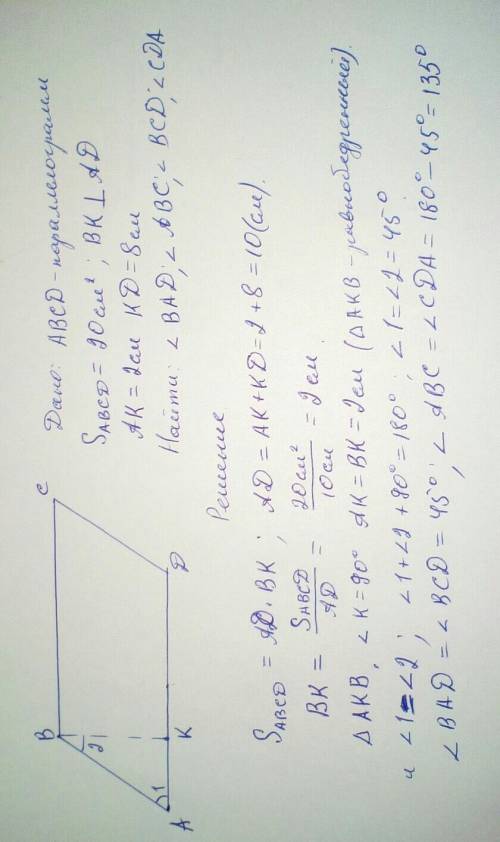 Дано: ABCD - параллелограмм
SABCD = 20 см²; BK ⊥ AD
AK = 2 см KD = 8 см
Найти: ∠ BAD; ∠ ABC; ∠ BCD; ∠ CDA
B
C
2
1
A
K
D
Решение
SABCD = AD · BK ; AD = AK + KD = 2 + 8 = 10 (см).
BK = SABCD / AD = 20 см² / 10 см = 2 см.
△ AKB, ∠ K = 90° AK = BK = 2 см (△ AKB - равнобедренный).
и ∠1 = ∠2 ; ∠1 + ∠2 + 90° = 180° ; ∠1 = ∠2 = 45°
∠ BAD = ∠ BCD = 45° ; ∠ ABC = ∠ CDA = 180° - 45° = 135°